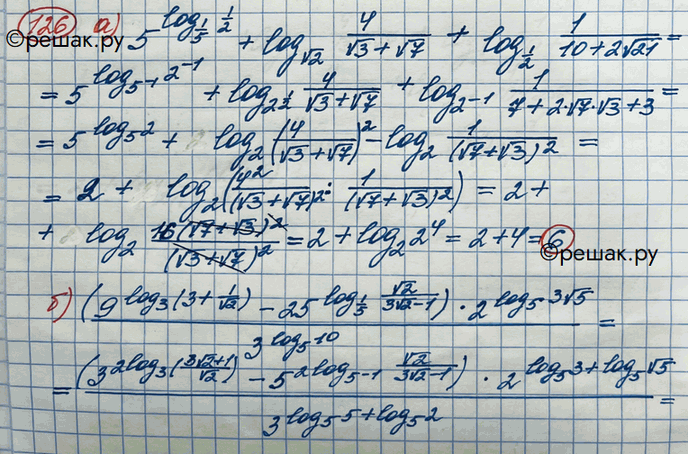 126 а) 5^{log_{1/5} 1/2} + log_{√2} 4/(√3+√7) + log_{1/2} 1/(10+2√21)
©решак.ру
= 5^{log_{5^{-1}} 2^{-1}} + log_{2^{1/2}} 4/(√3+√7) + log_{2^{-1}} 1/(7+2·√7·√3+3) =
= 5^{log_5 2} + log_2 (4/(√3+√7))^2 - log_2 1/(√7+√3)^2 =
= 2 + log_2 (4^2/(√3+√7)^2 : 1/(√7+√3)^2) = 2 +
+ log_2 16(√7+√3)^2/(√3+√7)^2 = 2 + log_2 2^4 = 2+4 = 6
©решак.ру
б) (9^{log_3(3+1/√2)} - 25^{log_{1/5} √2/(3√2-1)}) · 2^{log_5 3√5} / 3^{log_5 10} =
= (3^{2log_3((3√2+1)/√2)} - 5^{2log_{5^{-1}} √2/(3√2-1)}) · 2^{log_5 3+log_5 √5} / 3^{log_5 5+log_5 2} =